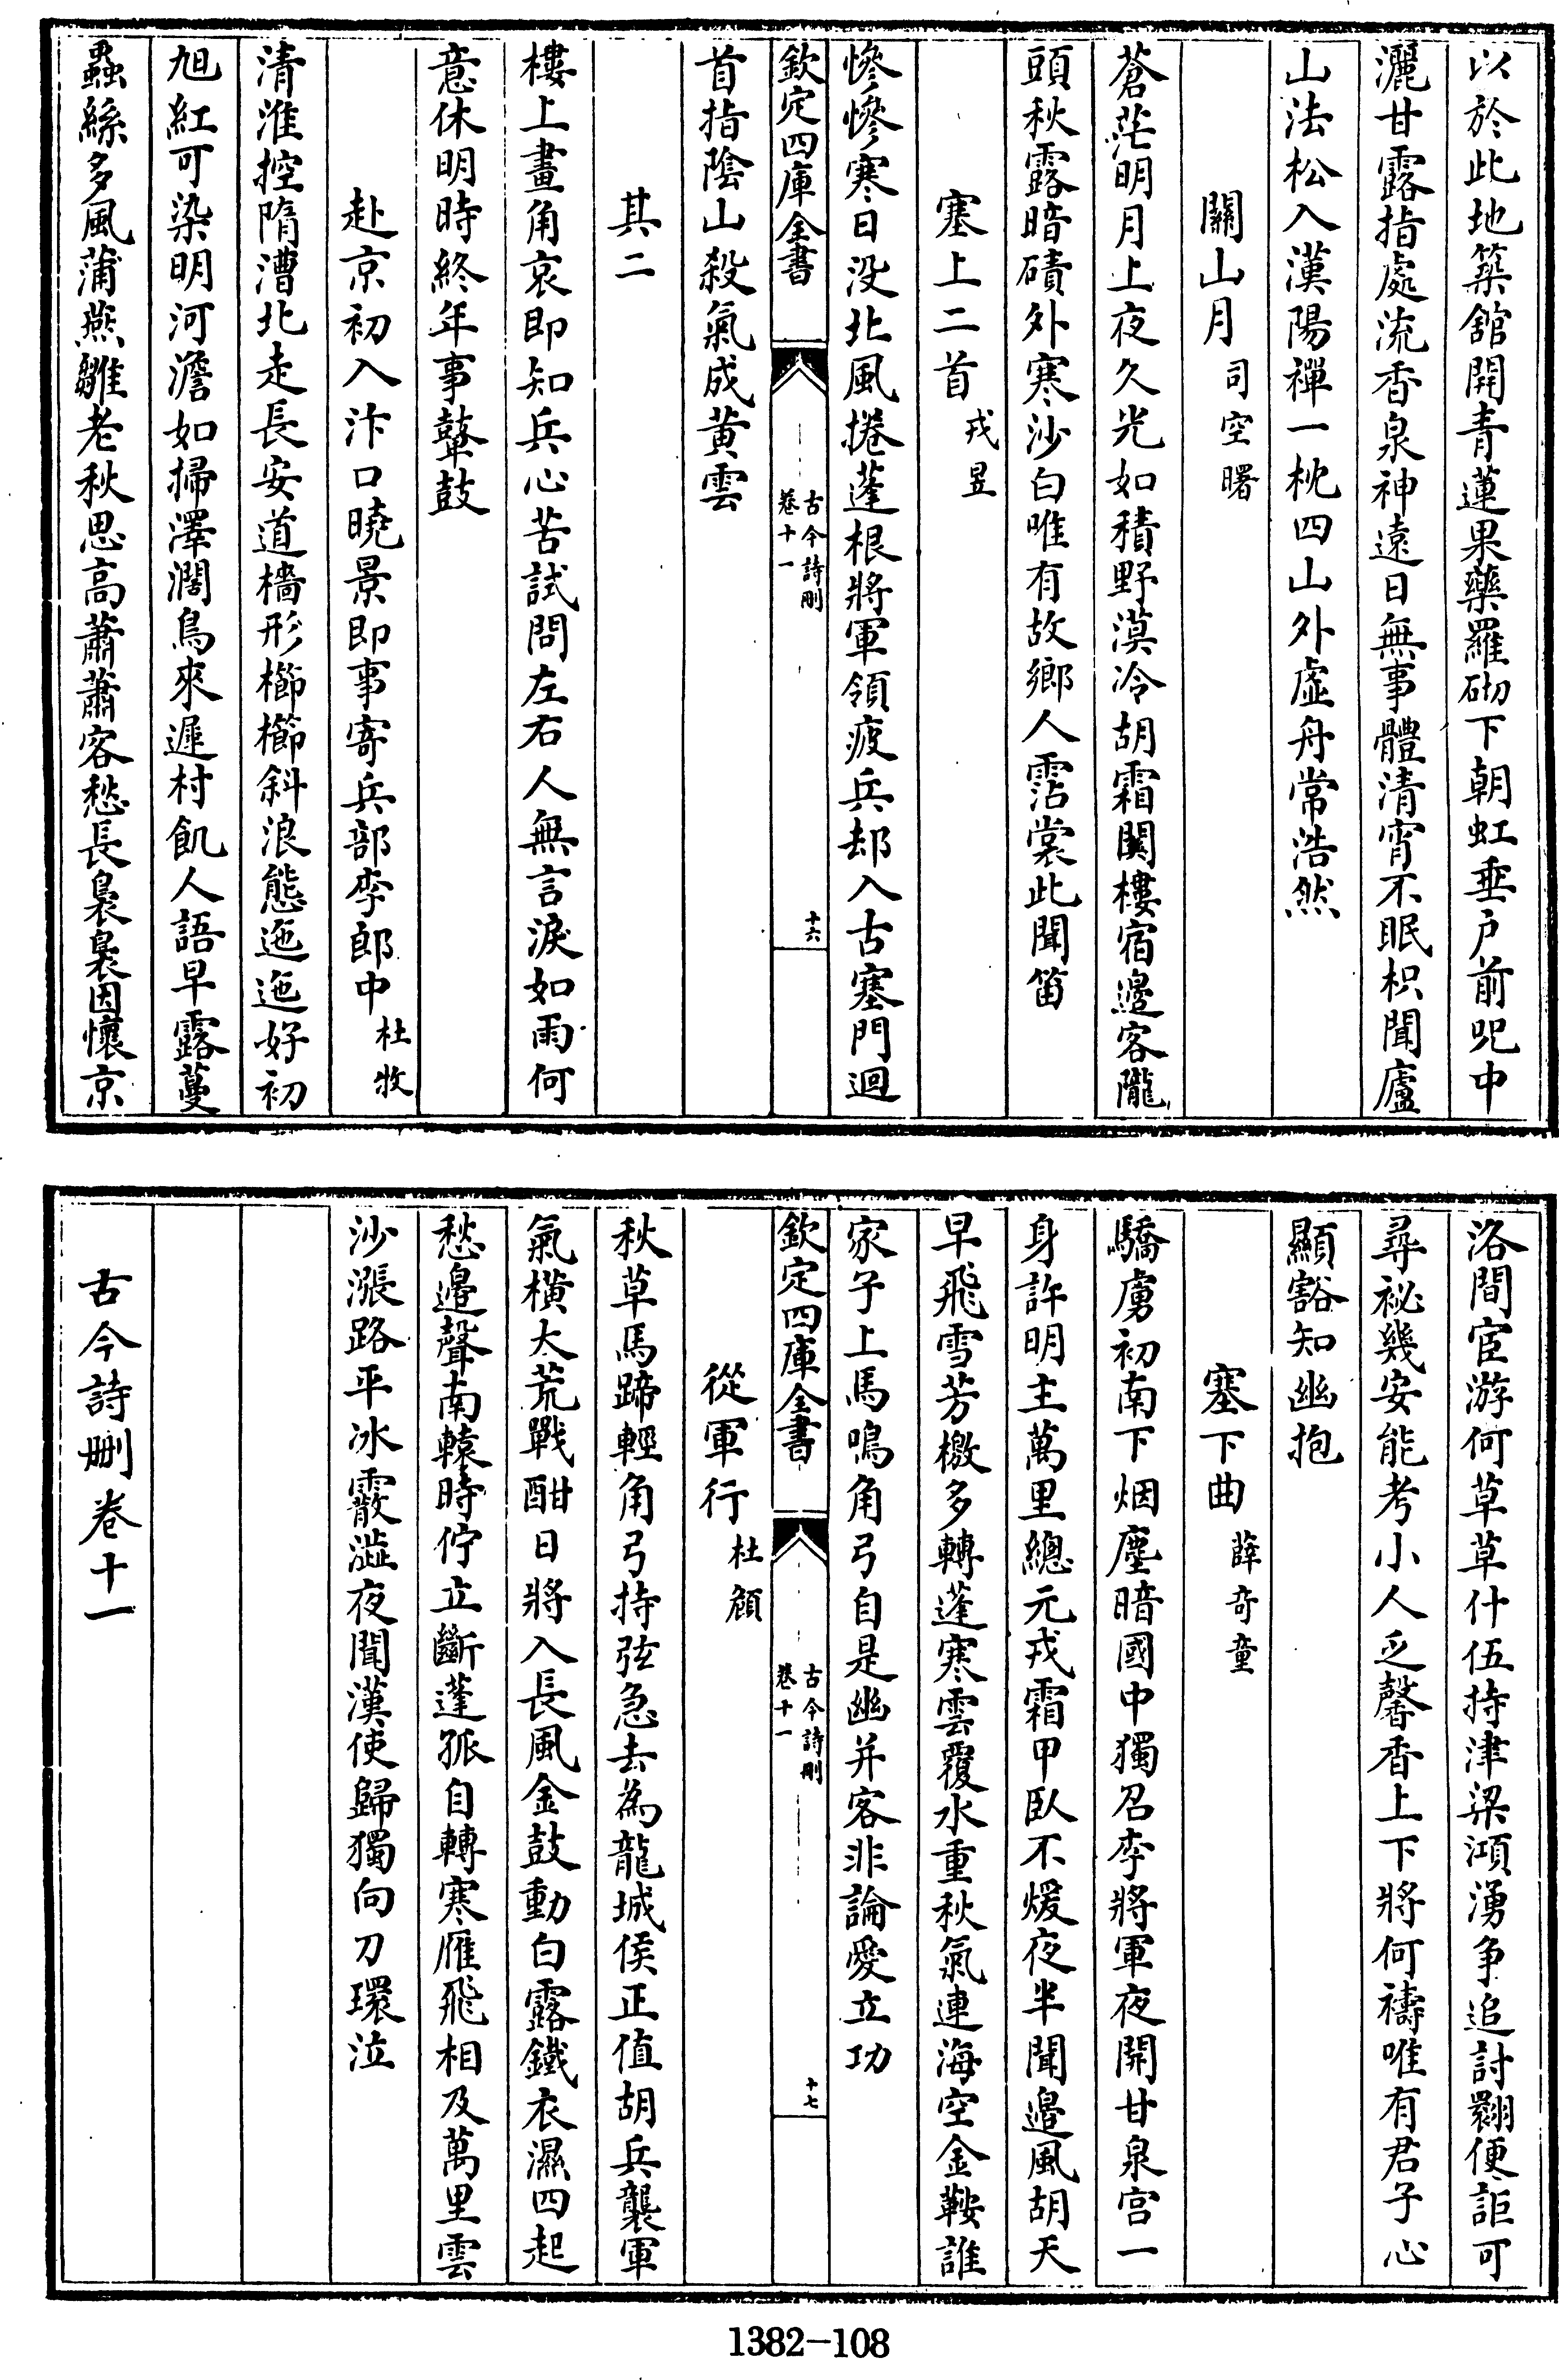 以於此地築舘開青蓮果藥羅砌下朝虹垂户前呪中
灑甘露指處流香泉神遠日無事體清宵不眠枳聞廬
山法松入漢陽禪一枕四山外虛舟常浩然
關山月司空曙
蒼茫明月上夜久光如積野漠冷胡霜關樓宿邊客隴
頭秋露暗磧外寒沙白唯有故鄉人霑裳此聞笛
塞上二首戎昱
慘慘寒日没北風捲蓬根將軍領疲兵却入古塞門迴
欽定四庫全書
古今詩刪
卷十一
十六
首指陰山殺氣成黄雲
其二
樓上畫角哀即知兵心苦試問左右人無言淚如雨何
意休明時終年事鼙鼓
赴京初入汴口曉景即事寄兵部李郎中杜牧
清淮控隋漕北走長安道檣形櫛櫛斜浪態迤迤好初
旭紅可染明河澹如掃澤濶鳥來遲村飢人語早露蔓
蟲絲多風蒲燕雛老秋思高蕭蕭客愁長裊裊因懷京
洛間宦游何草草什伍持津梁澒湧争追討翾便詎可
尋祕幾安能考小人乏馨香上下將何禱唯有君子心
顯豁知幽抱
塞下曲薛奇童
驕虜初南下烟塵暗國中獨召李將軍夜開甘泉宫一
身許明主萬里總元戎霜甲臥不煖夜半聞邊風胡天
早飛雪芳檄多轉蓬寒雲覆水重秋氣連海空金鞍誰
家子上馬鳴角弓自是幽并客非論愛立功
欽定四庫全書
古今詩刪
卷十一
十七
從軍行杜頠
秋草馬蹄輕角弓持弦急去為龍城侯正值胡兵襲軍
氣橫大荒戰酣日將入長風金鼓動白露鐵衣濕四起
愁邊聲南轅時佇立斷蓬孤自轉寒雁飛相及萬里雲
沙漲路平冰霰澁夜聞漢使歸獨向刀環泣
古今詩刪卷十一
1382-108